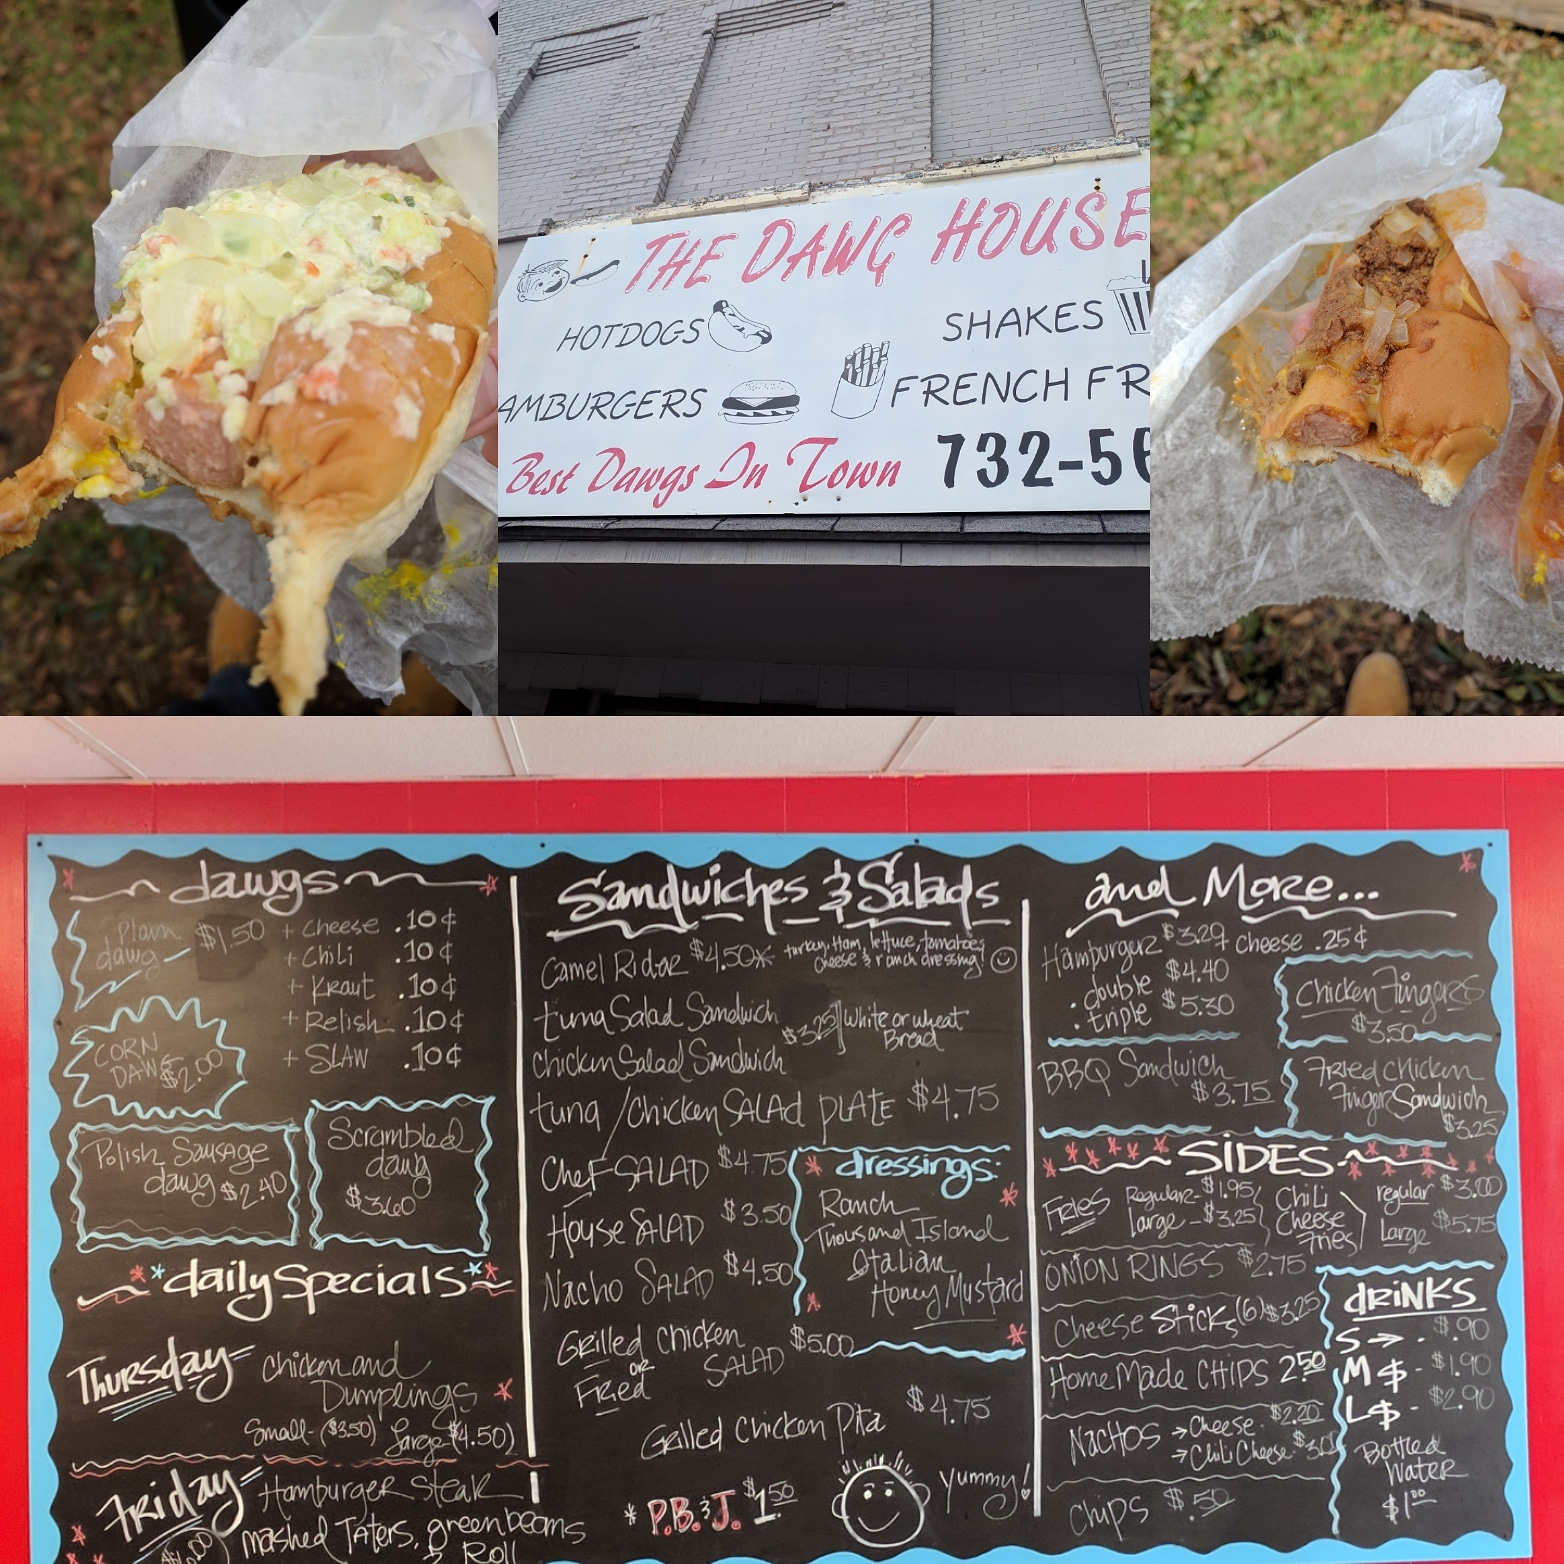 THE DAWG HOUSE
HOTDOGS
SHAKES
AMBURGERS
FRENCH FR
Best Dawgs In Town
732-56
dawgs
Plain dawg $1.50
+ Cheese .10¢
+ Chili .10¢
+ Kraut .10¢
+ Relish .10¢
+ SLAW .10¢
CORN
DAWG
$2.00
Polish Sausage
dawg $2.40
Scrambled
dawg
$3.60
daily Specials
Thursday= Chicken and
Dumplings
Small-($3.50) Large ($4.50)
Friday= Hamburger Steak
mashed Taters, green beans
& Roll
Sandwiches & Salads
Camel Rider $4.50* turkey, Ham, lettuce, tomatoe,
cheese & ranch dressing!
tuna Salad Sandwich
$3.25 White or wheat
Bread
Chicken Salad Sandwich
tuna / Chicken SALAd PLATE $4.75
Chef SALAD $4.75
House SALAD $3.50
Nacho SALAD $4.50
Grilled Chicken $5.00
or SALAD
Fried
dressings:
Ranch
Thousand Island
Italian
Honey Mustard
Grilled Chicken Pita $4.75
* P.B.&J. $1.50
yummy!
and More...
Hamburger $3.29 cheese .25¢
. double $4.40
. triple $5.30
Chicken Fingers
$3.50
BBQ Sandwich
$3.75
Fried Chicken
Finger Sandwich
$3.25
SIDES
Fries Regular- $1.95
Large - $3.25
Chili
Cheese
Fries
regular $3.00
Large $5.75
ONION RINGS $2.75
Cheese Sticks (6) $3.25
Home Made CHIPS 2.50
NACHOS → Cheese $2.20
→ Chili Cheese
Chips $.50
drINKS
S → - $.90
M $ - $1.90
L $ - $2.90
Bottled
Water
$1.00